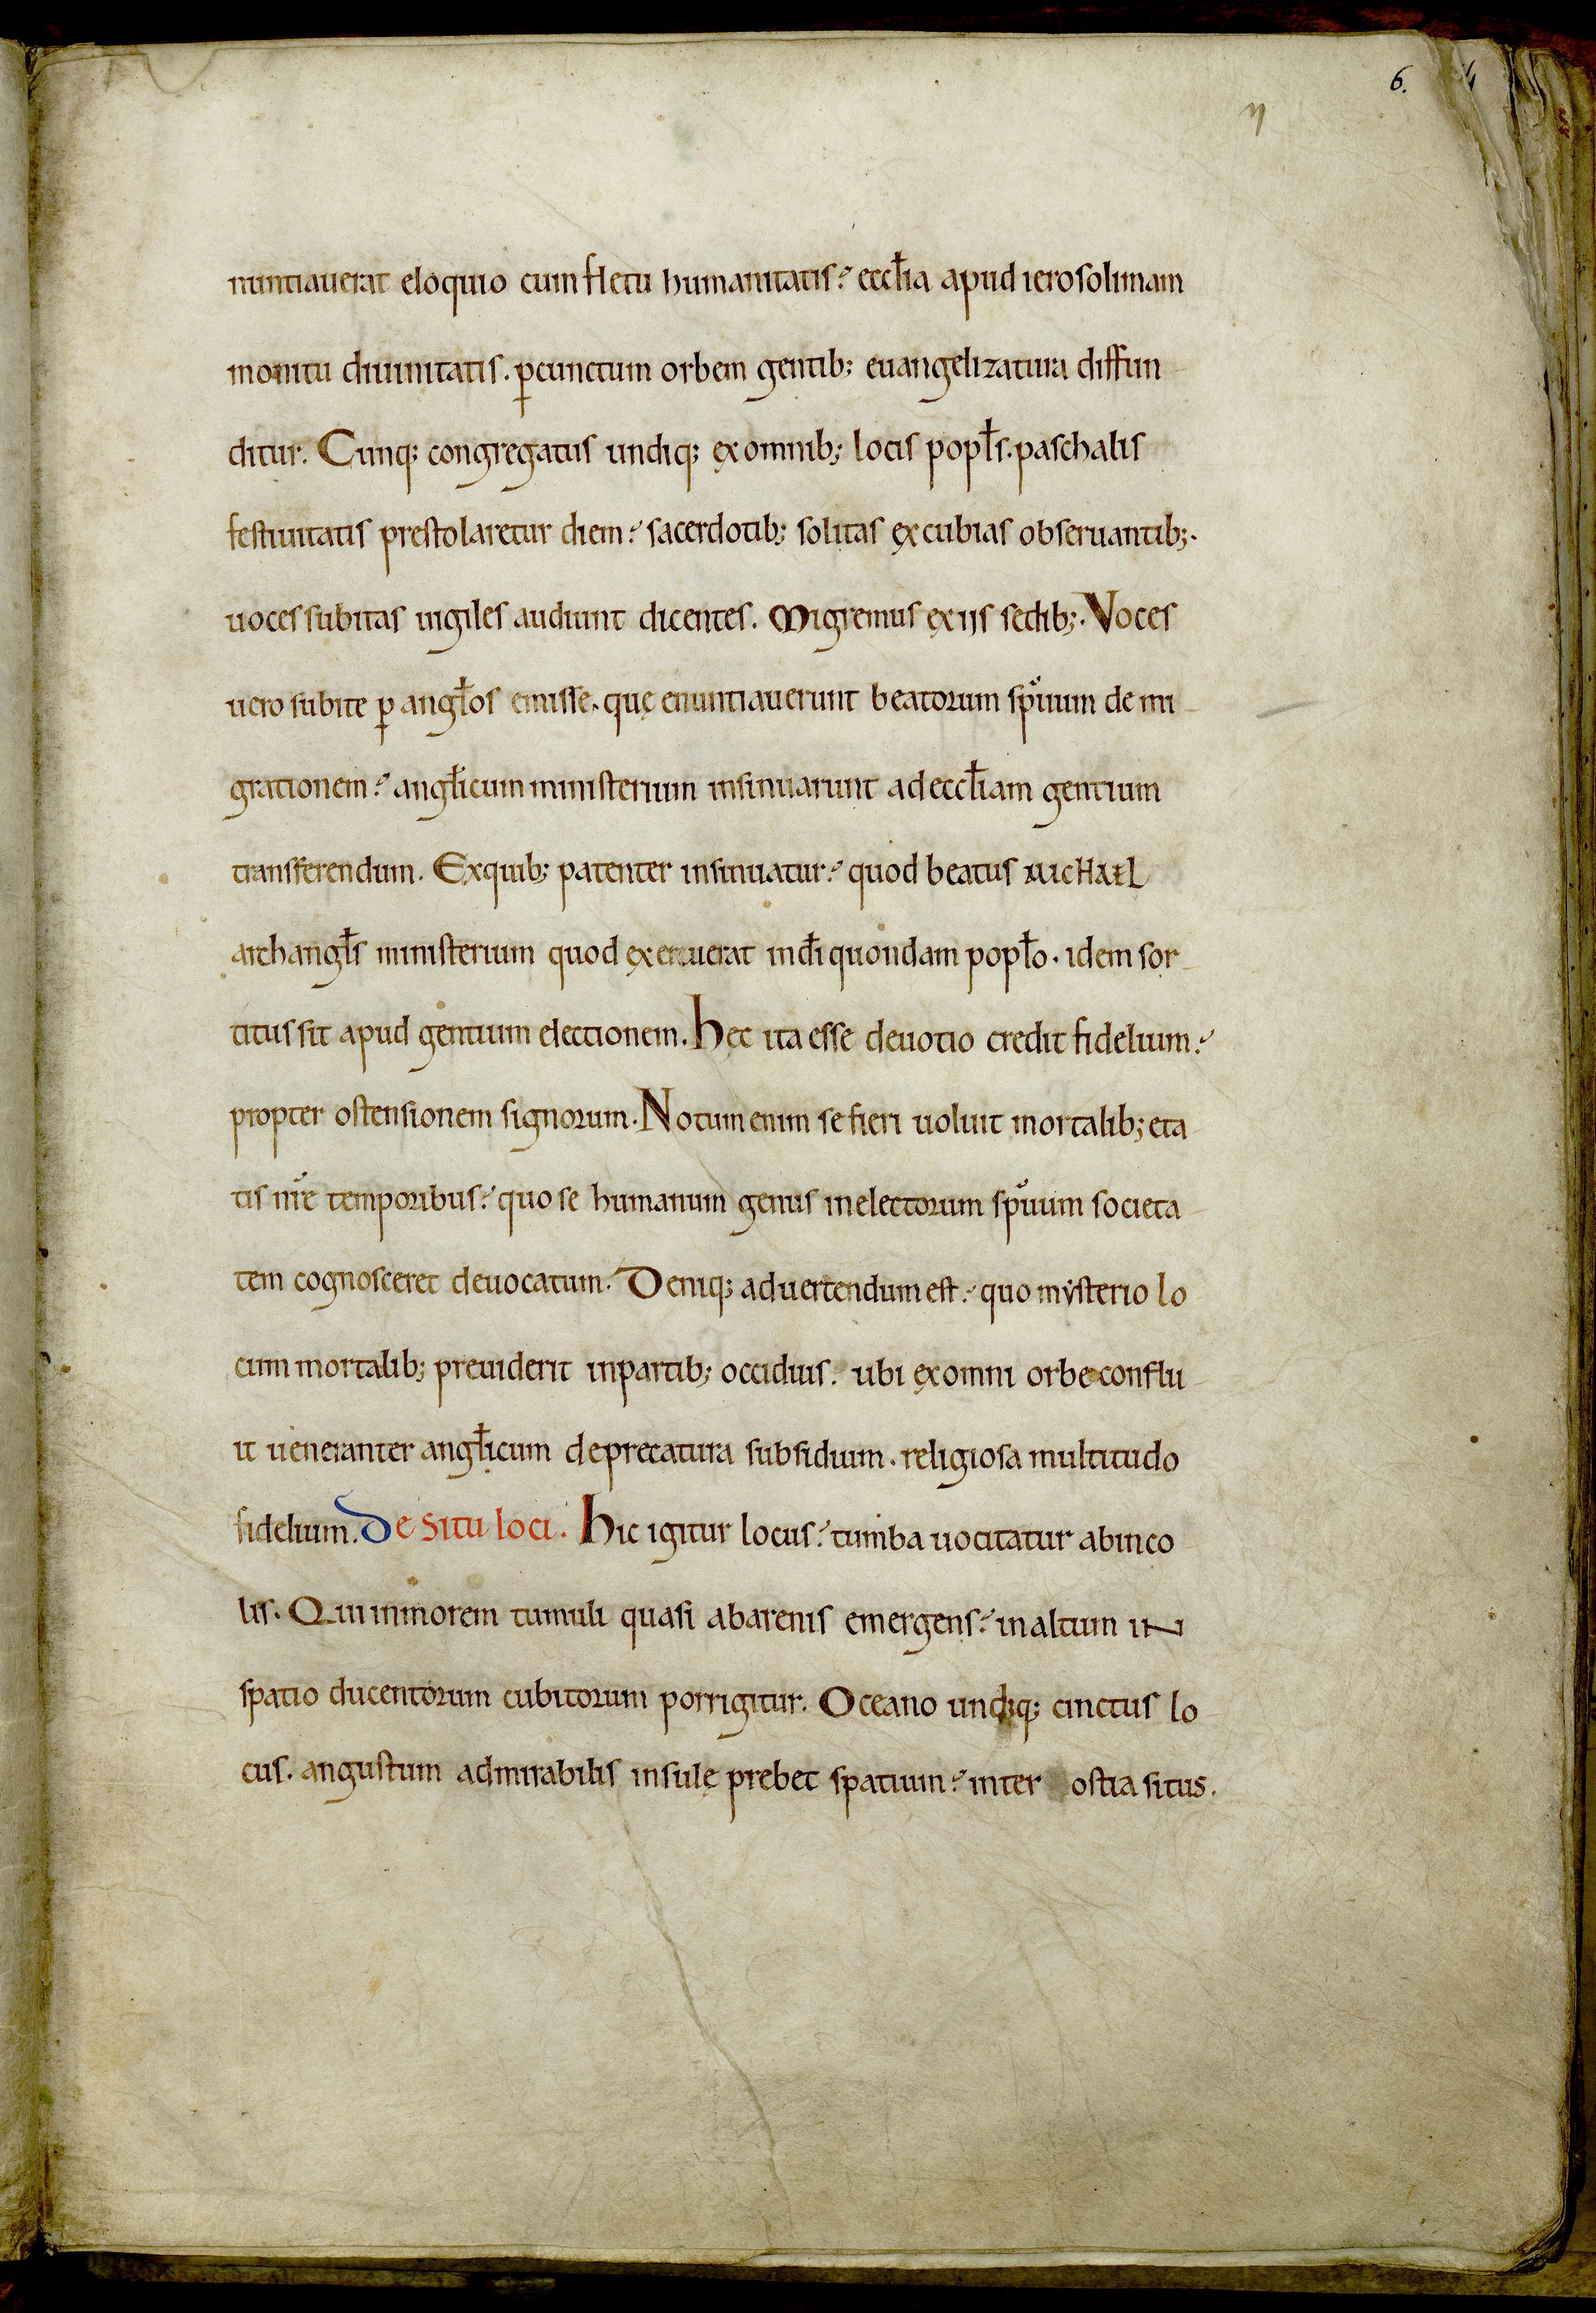 6.
nuntiauerat eloquio cum fletu humanitatis ecclia apud ierosolimam
monitu diuinitatis. p cunctum orbem gentib; euangelizatura diffun
ditur. Cunq; congregatus undiq; ex omnib; locis popls. paschalis
festiuitatis prestolaretur diem sacerdotib; solitas excubias obseruantib;.
uoces subitas uigiles audiunt dicentes. Migremus ex iis sedib;. Voces
uero subite p anglos emisse. quę enuntiauerunt beatorum spuum de mi
grationem anglicum ministerium insinuarunt ad eccliam gentium
transferendum. Ex quib; patenter insinuatur quod beatus MICHAEL
archangls ministerium quod exercuerat in di quondam poplo. idem sor
titus sit apud gentium electionem. Hęc ita esse deuotio credit fidelium
propter ostensionem signorum. Notum enim se fieri uoluit mortalib; eta
tis nre temporibus quo se humanum genus in electorum spuum societa
tem cognosceret deuocatum. Deniq; aduertendum est quo mysterio lo
cum mortalib; preuiderit in partib; occiduis. ubi ex omni orbe conflu
it ueneranter anglicum deprecatura subsidium. religiosa multitudo
fidelium. De situ loci. Hic igitur locus tumba uocitatur ab inco
lis. Qui in morem tumuli quasi ab arenis emergens in altum IN
spatio ducentorum cubitorum porrigitur. Oceano undiq; cinctus lo
cus. angustum admirabilis insulę prebet spatium inter ostia situs.